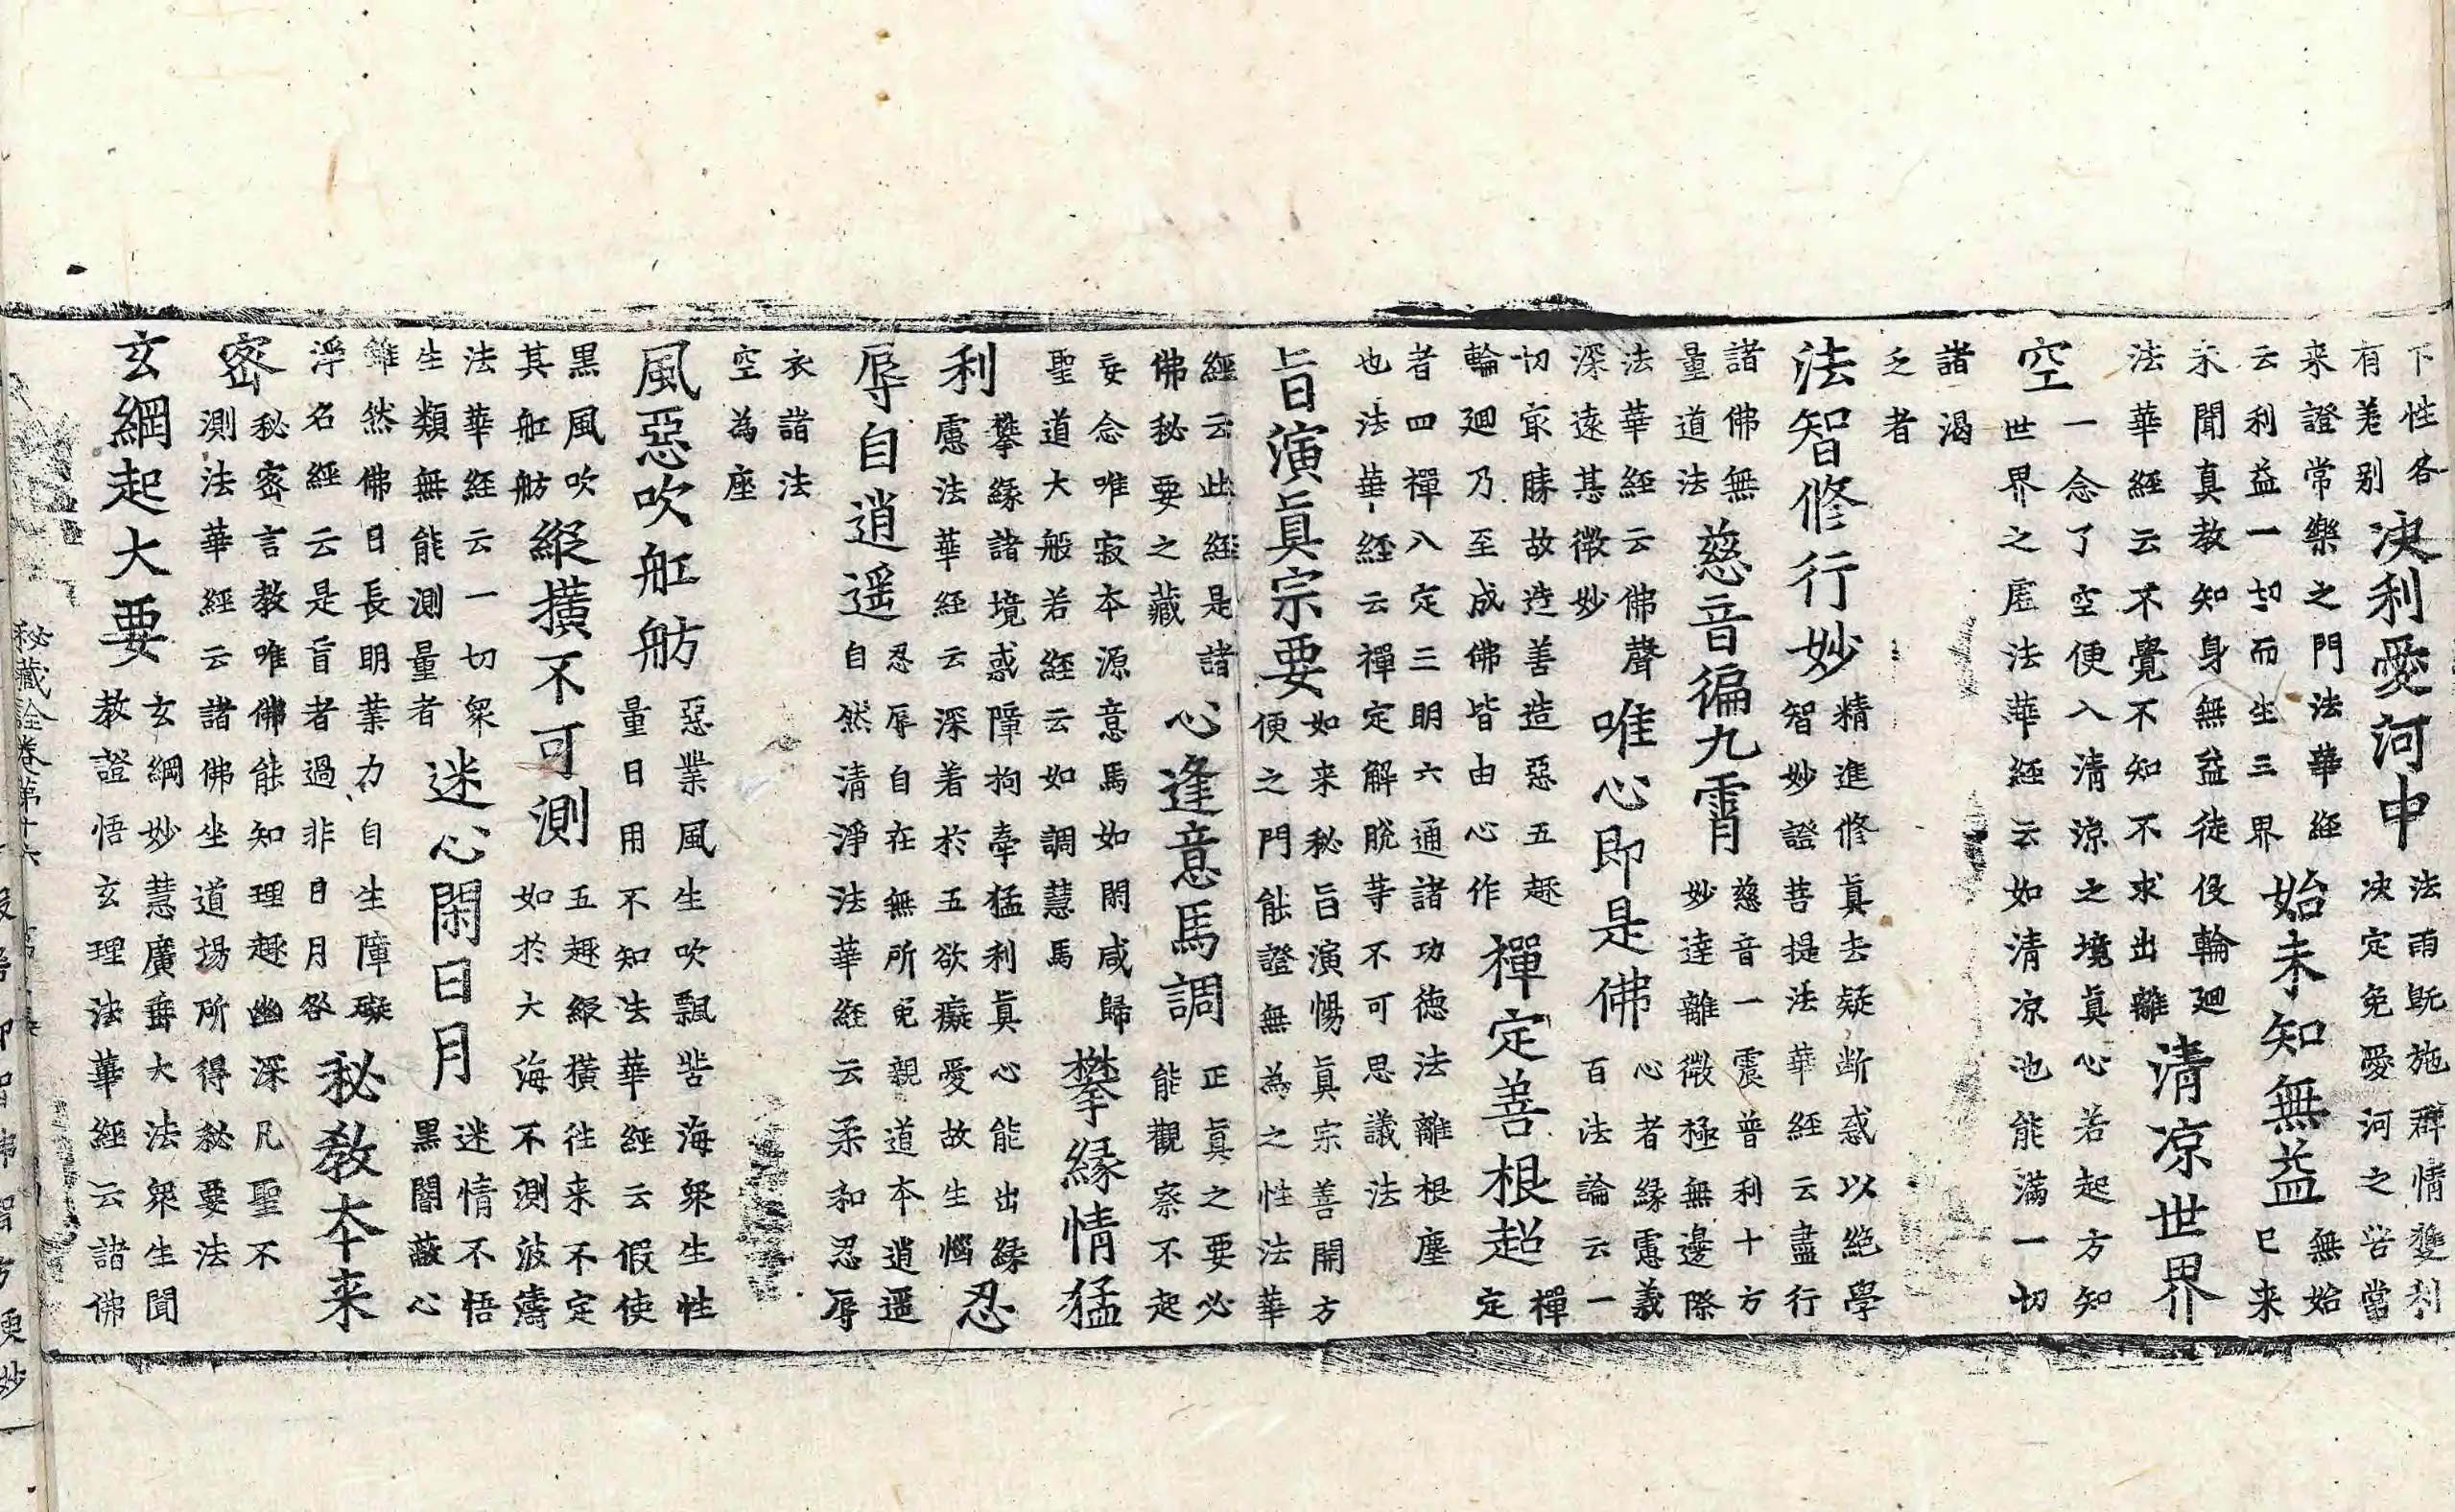 下性各
有差别
决利愛河中
法雨既施群情雙利
决定免愛河之苦當
来證常樂之門法華經
云利益一切而生三界
始未知無益
無始
已来
永聞真教知身無益徒役輪廻
法華經云不覺不知不求出離
清凉世界
空
一念了空便入清凉之境真心若起方知
世界之虛法華經云如清凉池能滿一切
諸渴
乏者
法智修行妙
精進修真去疑断惑以絶學
智妙證菩提法華經云盡行
諸佛無
量道法
慈音徧九霄
慈音一震普利十方
妙達離微極無邊際
法華經云佛聲
深遠甚微妙
唯心即是佛
心者緣慮義
百法論云一
切㝡勝故造善造惡五趣
輪廻乃至成佛皆由心作
禪定善根超
禪
定
者四禪八定三明六通諸功德法離根塵
也法華經云禪定解脫等不可思議法
旨演真宗要
如来秘旨演暢真宗善開方
便之門能證無為之性法華
經云此經是諸
佛秘要之藏
心逢意馬調
正真之要必
能觀察不起
妄念唯寂本源意馬如閑咸歸
聖道大般若經云如調慧馬
攀緣情猛
利
攀緣諸境惑障拘牽猛利真心能出緣
慮法華經云深着於五欲癡愛故生惱
忍
辱自逍遥
忍辱自在無所免親道本逍遥
自然清淨法華經云柔和忍辱
衣諸法
空為座
風惡吹舡舫
惡業風生吹飄苦海衆生性
量日用不知法華經云假使
黑風吹
其舡舫
縱橫不可測
五趣縱橫往来不定
如於大海不測波濤
法華經云一切衆
生類無能測量者
迷心閑日月
迷情不悟
黑闇蔽心
雖然佛日長明業力自生障礙
浮名經云是盲者過非日月咎
秘教本来
密
秘密言教唯佛能知理趣幽深凡聖不
測法華經云諸佛坐道場所得秘要法
玄綱起大要
玄綱妙慧廣垂大法衆生聞
教證悟玄理法華經云諸佛
秘藏詮卷第十六